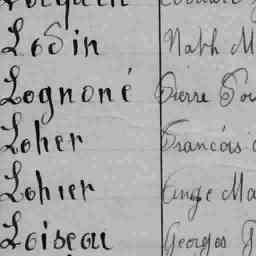 Lodin Nath M
Lognoné Pierre
Loher François
Lohier Ange Ma
Loiseau Georges